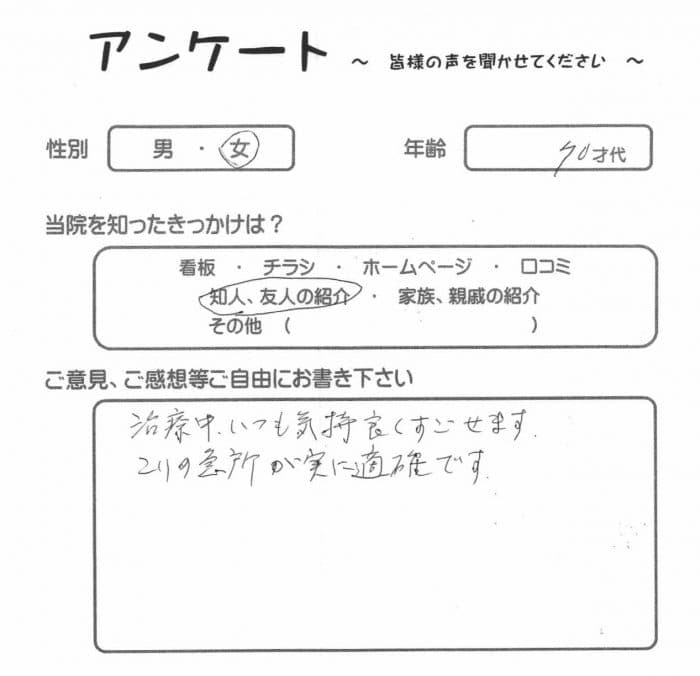 アンケート ～ 皆様の声を聞かせてください ～
性別 男 ・ 女 年齢 70才代
当院を知ったきっかけは？
看板 ・ チラシ ・ ホームページ ・ 口コミ
知人、友人の紹介 ・ 家族、親戚の紹介
その他 （ ）
ご意見、ご感想等ご自由にお書き下さい
治療中、いつも気持良くすごせます。
コリの急所が実に適確です